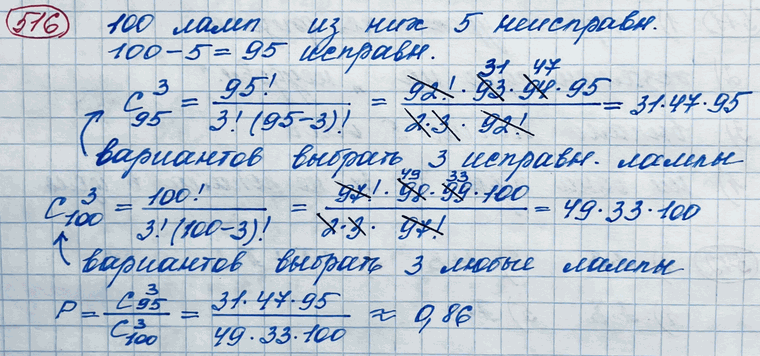 516 100 ламп из них 5 неисправн.
100 - 5 = 95 исправн.
C₉₅³ = 95! / 3! (95-3)! = 92! · 93 · 94 · 95 / 2·3 · 92! = 31·47·95
31 47
вариантов выбрать 3 исправн. лампы
C₁₀₀³ = 100! / 3! (100-3)! = 97! · 98 · 99 · 100 / 2·3 · 97! = 49·33·100
49 33
вариантов выбрать 3 любые лампы
P = C₉₅³ / C₁₀₀³ = 31·47·95 / 49·33·100 ≈ 0,86